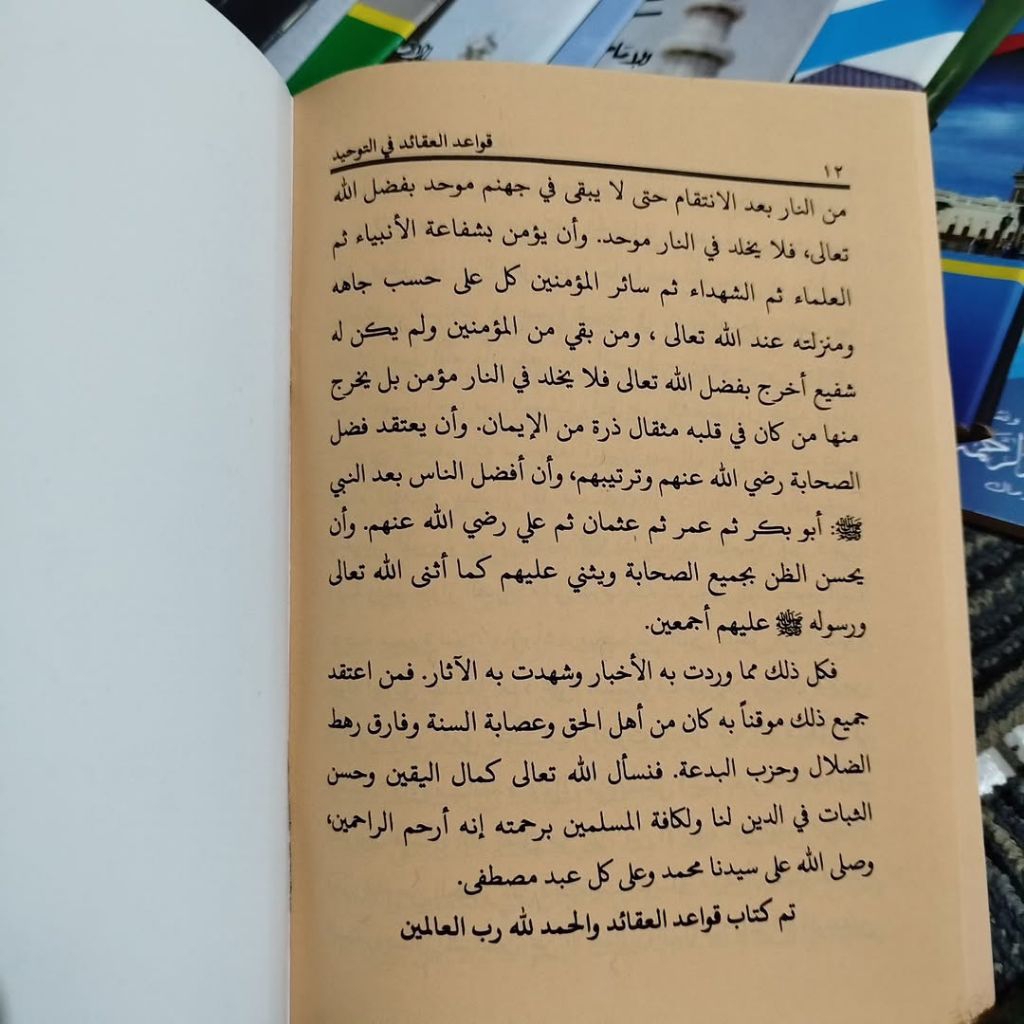 قواعد العقائد في التوحيد
١٢
من النار بعد الانتقام حتى لا يبقى في جهنم موحد بفضل الله
تعالى، فلا يخلد في النار موحد. وأن يؤمن بشفاعة الأنبياء ثم
العلماء ثم الشهداء ثم سائر المؤمنين كل على حسب جاهه
ومنزلته عند الله تعالى ، ومن بقي من المؤمنين ولم يكن له
شفيع أخرج بفضل الله تعالى فلا يخلد في النار مؤمن بل يخرج
منها من كان في قلبه مثقال ذرة من الإيمان. وأن يعتقد فضل
الصحابة رضي الله عنهم وترتيبهم، وأن أفضل الناس بعد النبي
ﷺ: أبو بكر ثم عمر ثم عثمان ثم علي رضي الله عنهم. وأن
يحسن الظن بجميع الصحابة ويثني عليهم كما أثنى الله تعالى
ورسوله ﷺ عليهم أجمعين.
فكل ذلك مما وردت به الأخبار وشهدت به الآثار. فمن اعتقد
جميع ذلك موقناً به كان من أهل الحق وعصابة السنة وفارق رهط
الضلال وحزب البدعة. فنسأل الله تعالى كمال اليقين وحسن
الثبات في الدين لنا ولكافة المسلمين برحمته إنه أرحم الراحمين،
وصلى الله على سيدنا محمد وعلى كل عبد مصطفى.
تم كتاب قواعد العقائد والحمد لله رب العالمين